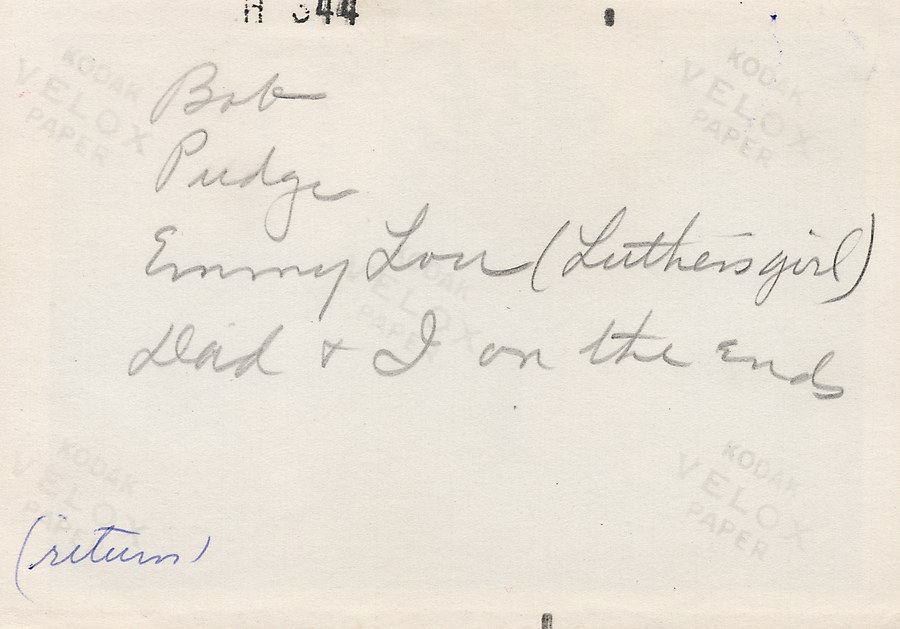 KODAK
VELOX
PAPER
KODAK
VELOX
PAPER
Bob
Pudge
Emmy Lou (Luthers girl)
Dad & I on the Ends
KODAK
VELOX
PAPER
KODAK
VELOX
PAPER
KODAK
VELOX
PAPER
(return)